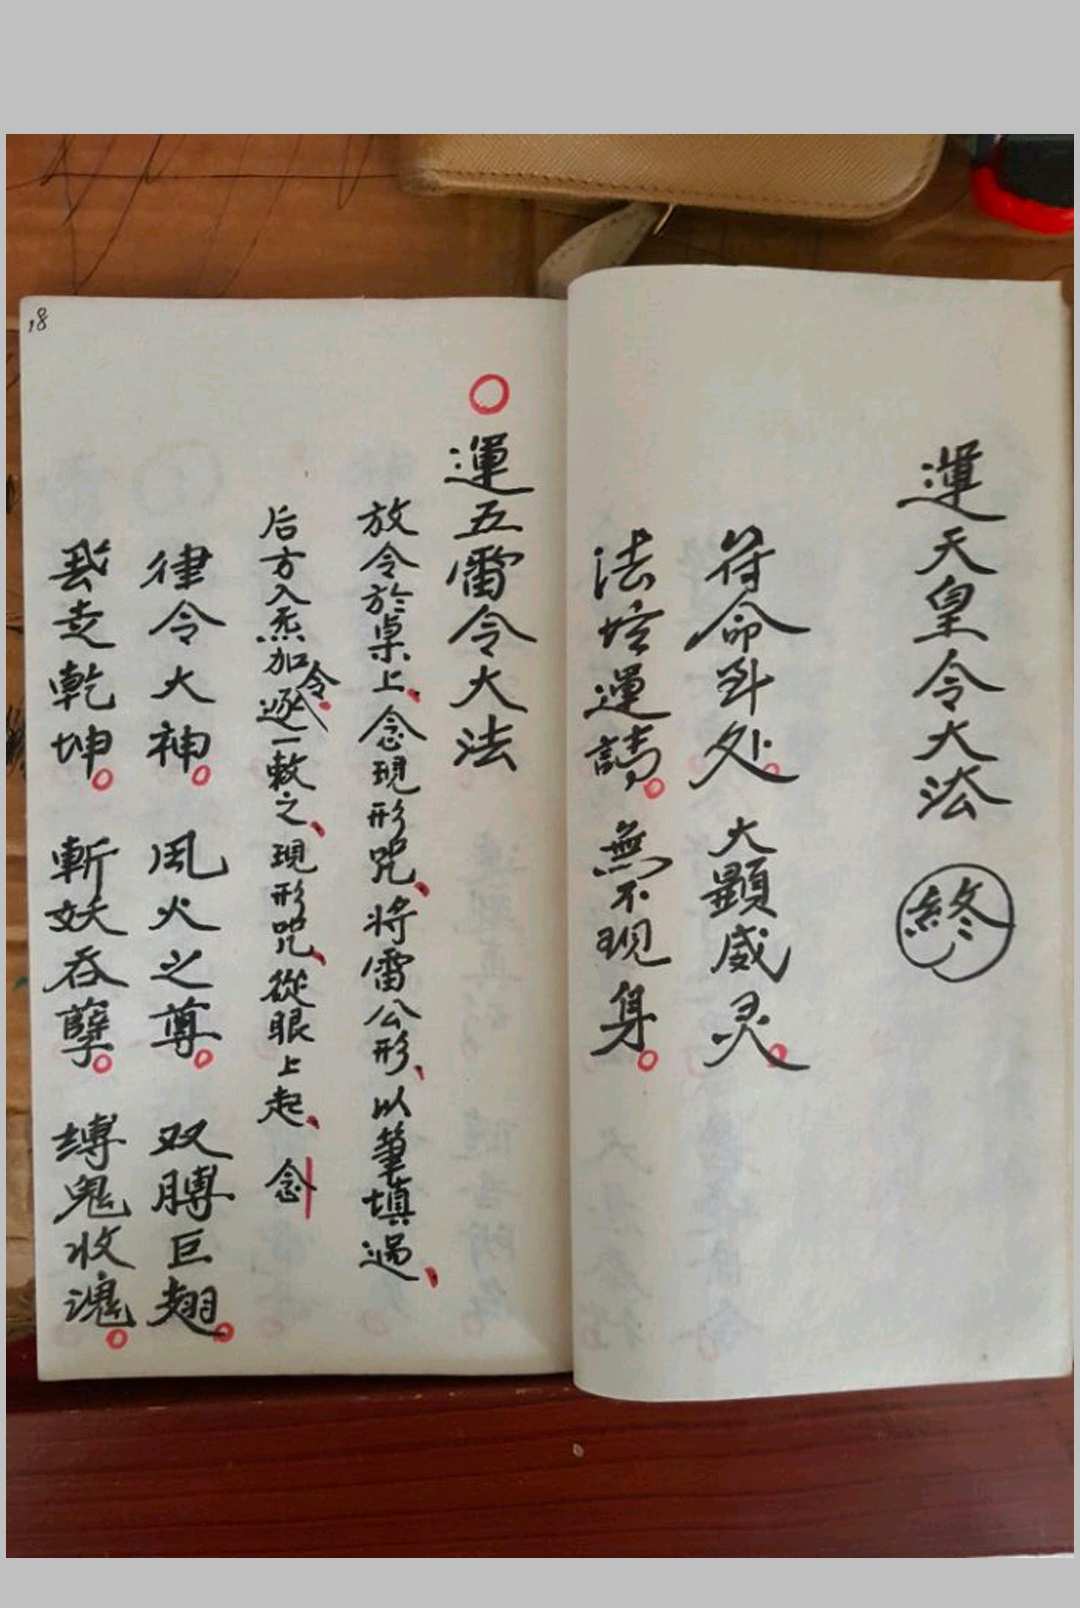 運天皇令大法 終
符命到处。大顯威灵。
法坛運請。無不現身。
18
○運五雷令大法
放令於桌上、念現形咒、将雷公形、以筆填過、
后方入炁加令逐一敕之、現形咒、從眼上起、念
律令大神。風火之尊。双膊巨翅。
飛走乾坤。斬妖吞孽。缚鬼收魂。